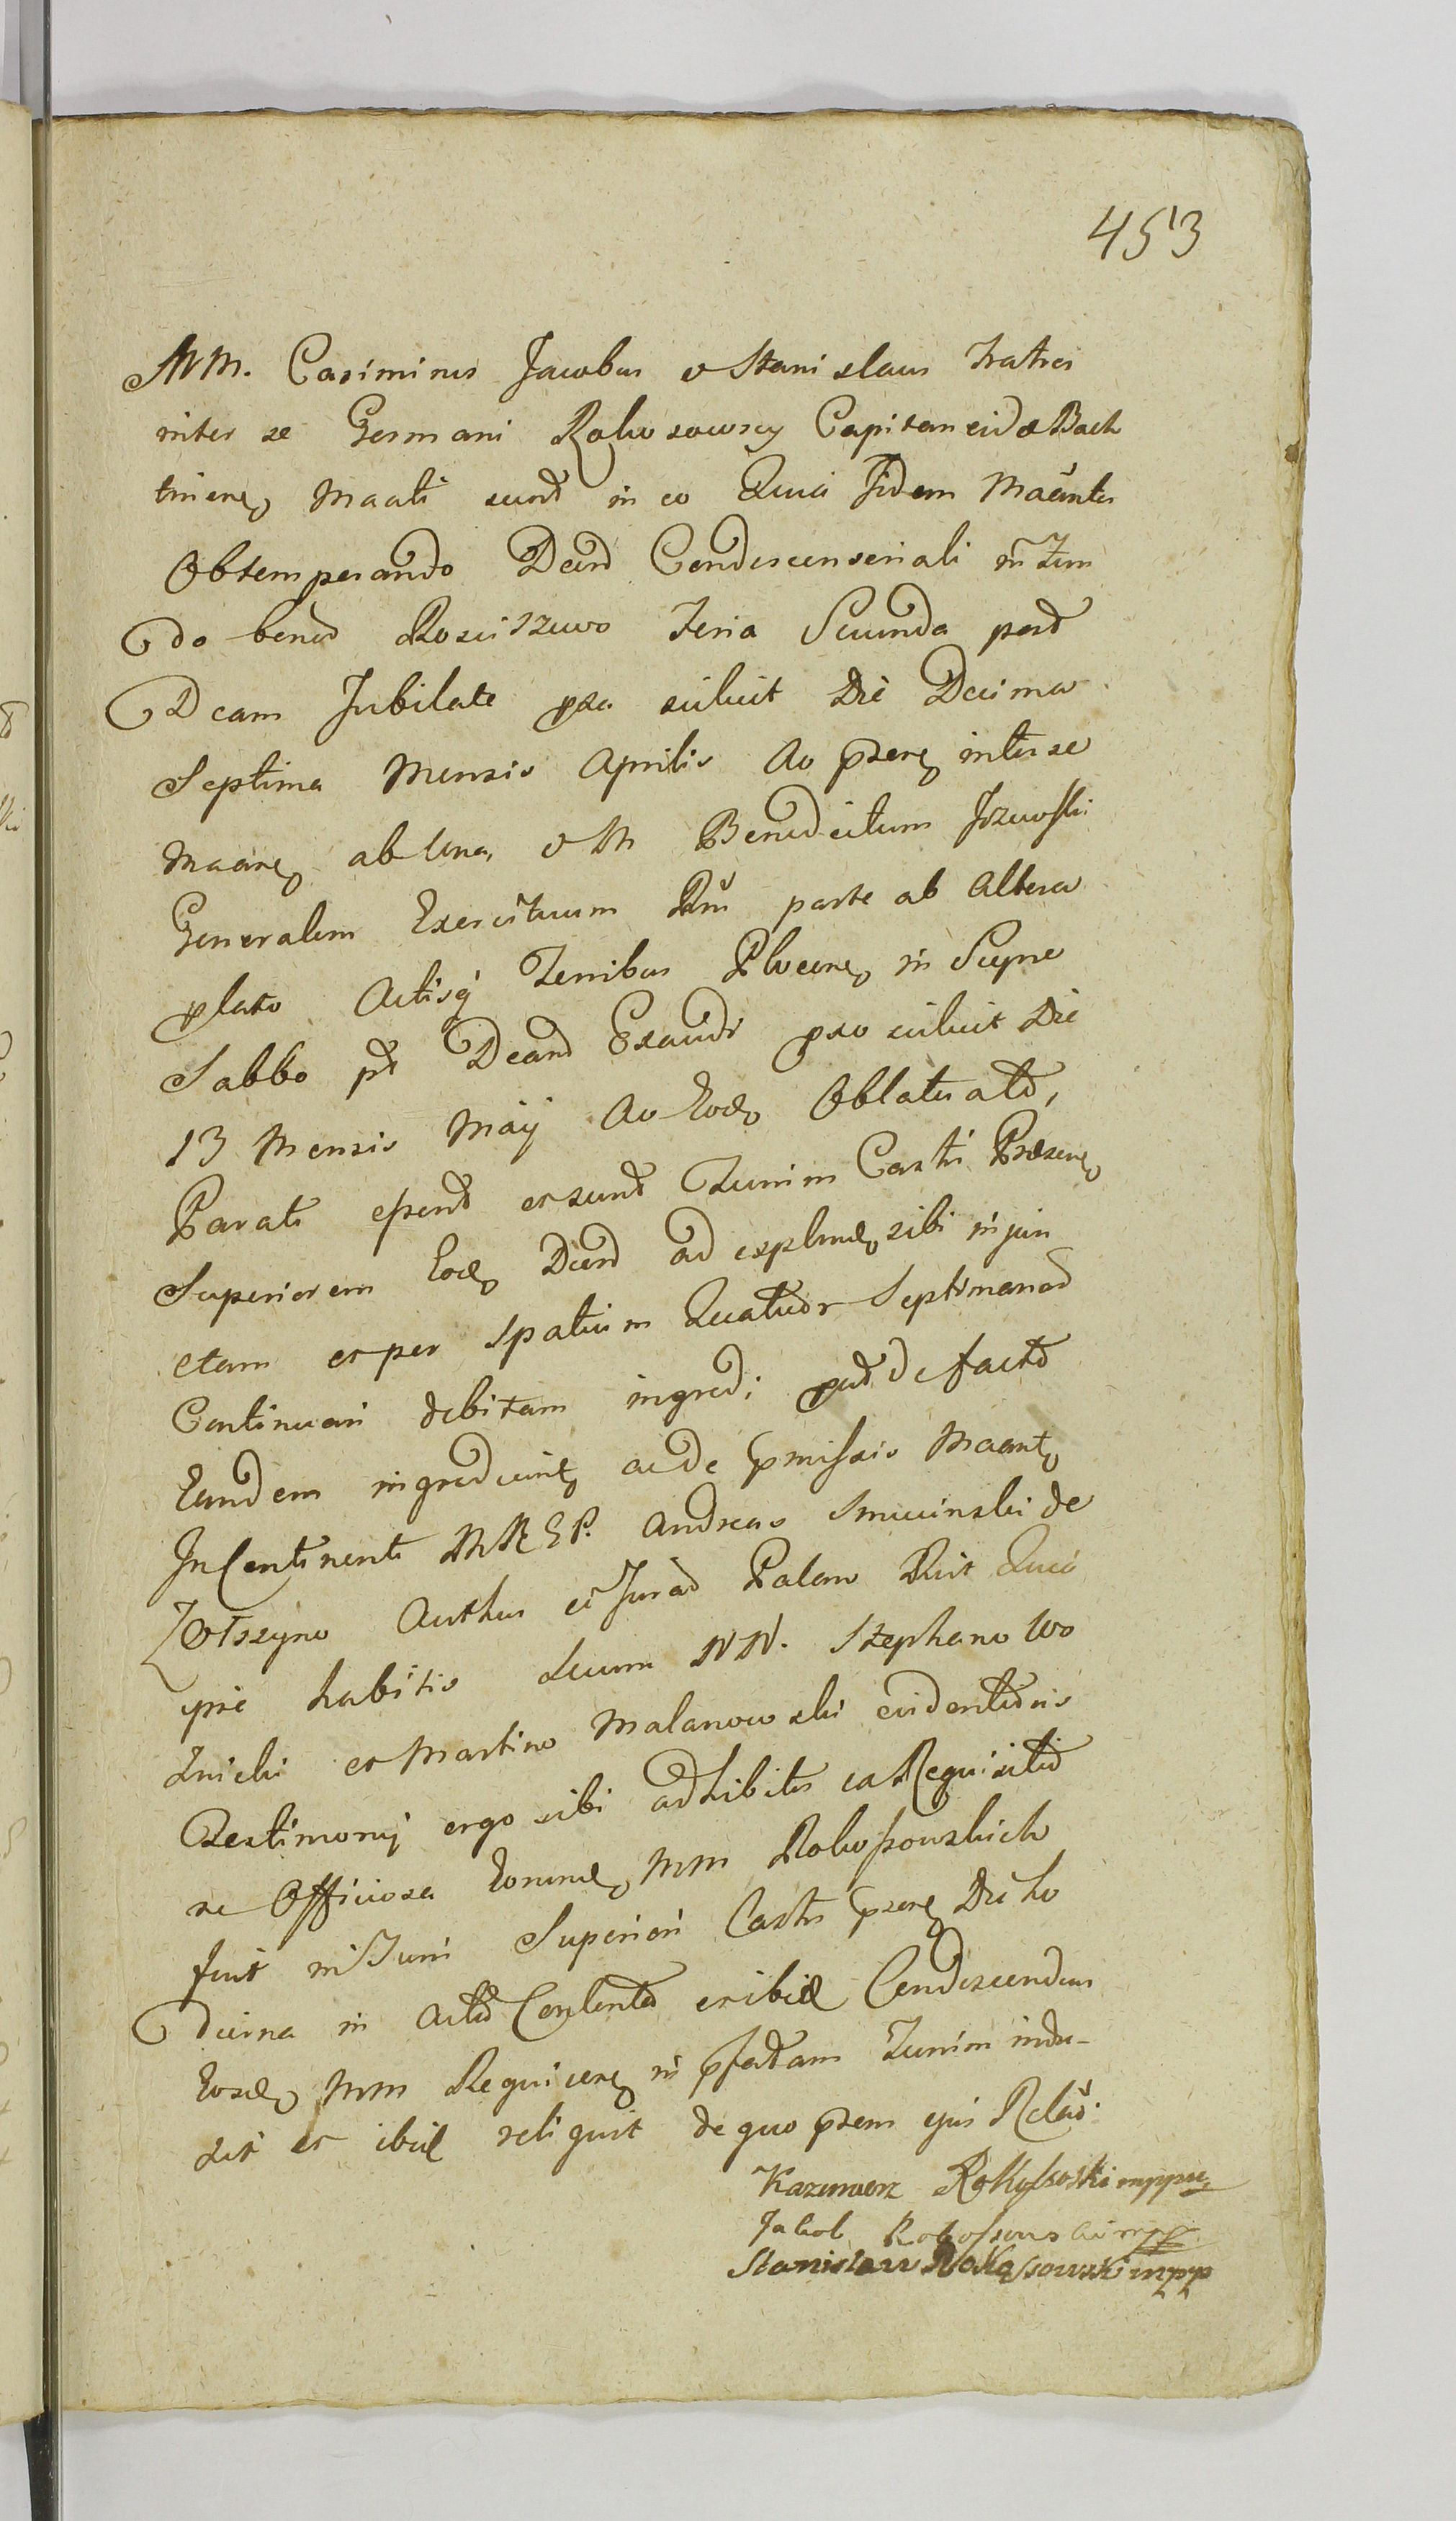 453
MM. Casimirus Jacobus et Stanislaus Fratres
inter se Germani Rokosowscy Capitaneidae Bach
tinens Maati sunt in eo Quia Iidem Maantes
Obtemperando Decreto Condescensoriali in Fun
do bonorum Rosciszewo Feria Secunda post
Dcam Jubilate pxa scilicet Die Decima
Septima Mensis Aprilis Ao pzen inter se
Maanes ab una, et M Benedictum Jzewski
Generalem Exercituum Rni parte ab altera
plato Actisq Terribus Plocens in Sierpc
Sabbo pt Dcam Exaudi pxo scilicet Die
13 Mensis Maij Ao Eode Oblatuato,
Parati essent et sunt Turrim Castri Praesen
Superiorem Eode Decreto ad explendum sibi injun
ctam et per spatium Quatuor Septimanas
Continuari debitam ingredi prout de facto
Eandem ingrediunt ac de pmissis Maant
In Continenti MREP. Andreas Smiecinski de
Zotszyno Authus et Jurad Palam Rit Quia
ipse habitis secum NN. Stephano Wo
znicki et Martino Malanowski evidentioris
Testimonij ergo sibi adhibitis ea Requisitio
ne Officiosa Eorunde MM Rokossowskich
fuit in Turri Superiori Castri pzens Die ho
dierna in Actu Contento et ibid Condescendens
Eosde MM Requirens in pfatam Turrim indu-
xit et ibid reliquit de quo pzem ejus Relao.
Kazimierz Rokossoski mppa
Jakob Rokossowski mpp
Stanisław Rokossowski mpp